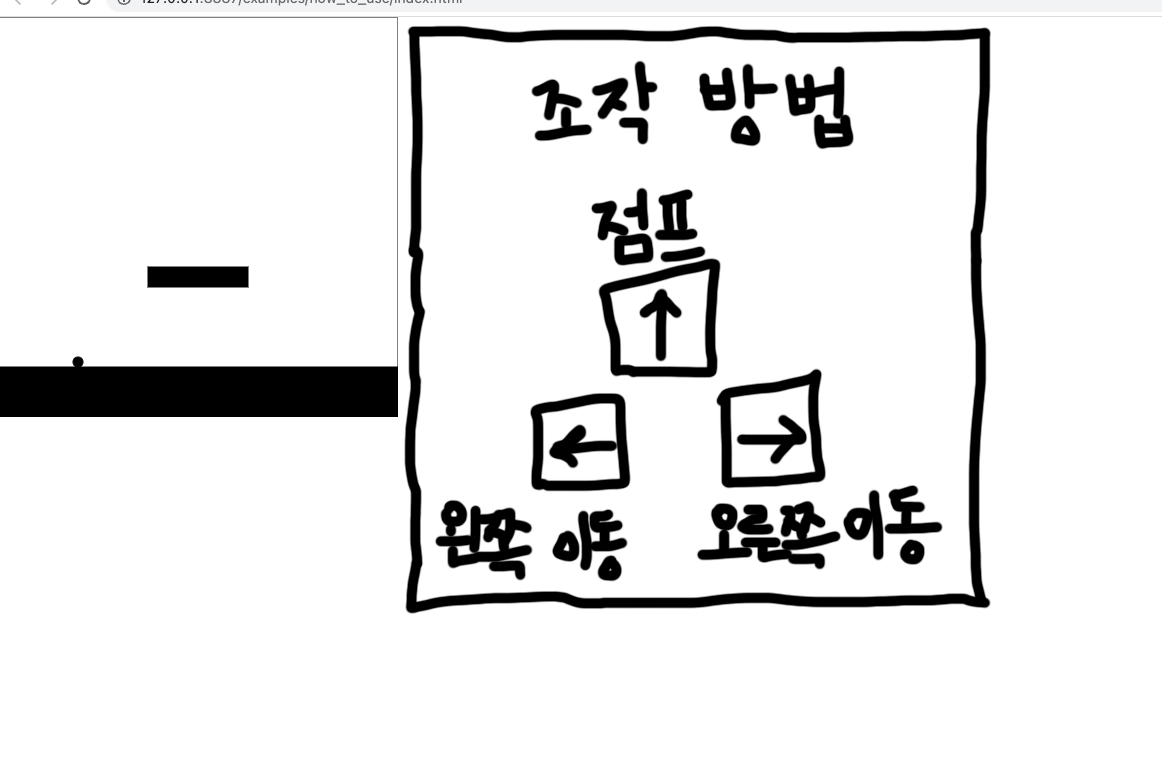 127.0.0.1:8887/examples/how_to_use/index.html
조작 방법
점프
↑
← →
왼쪽 이동 오른쪽 이동